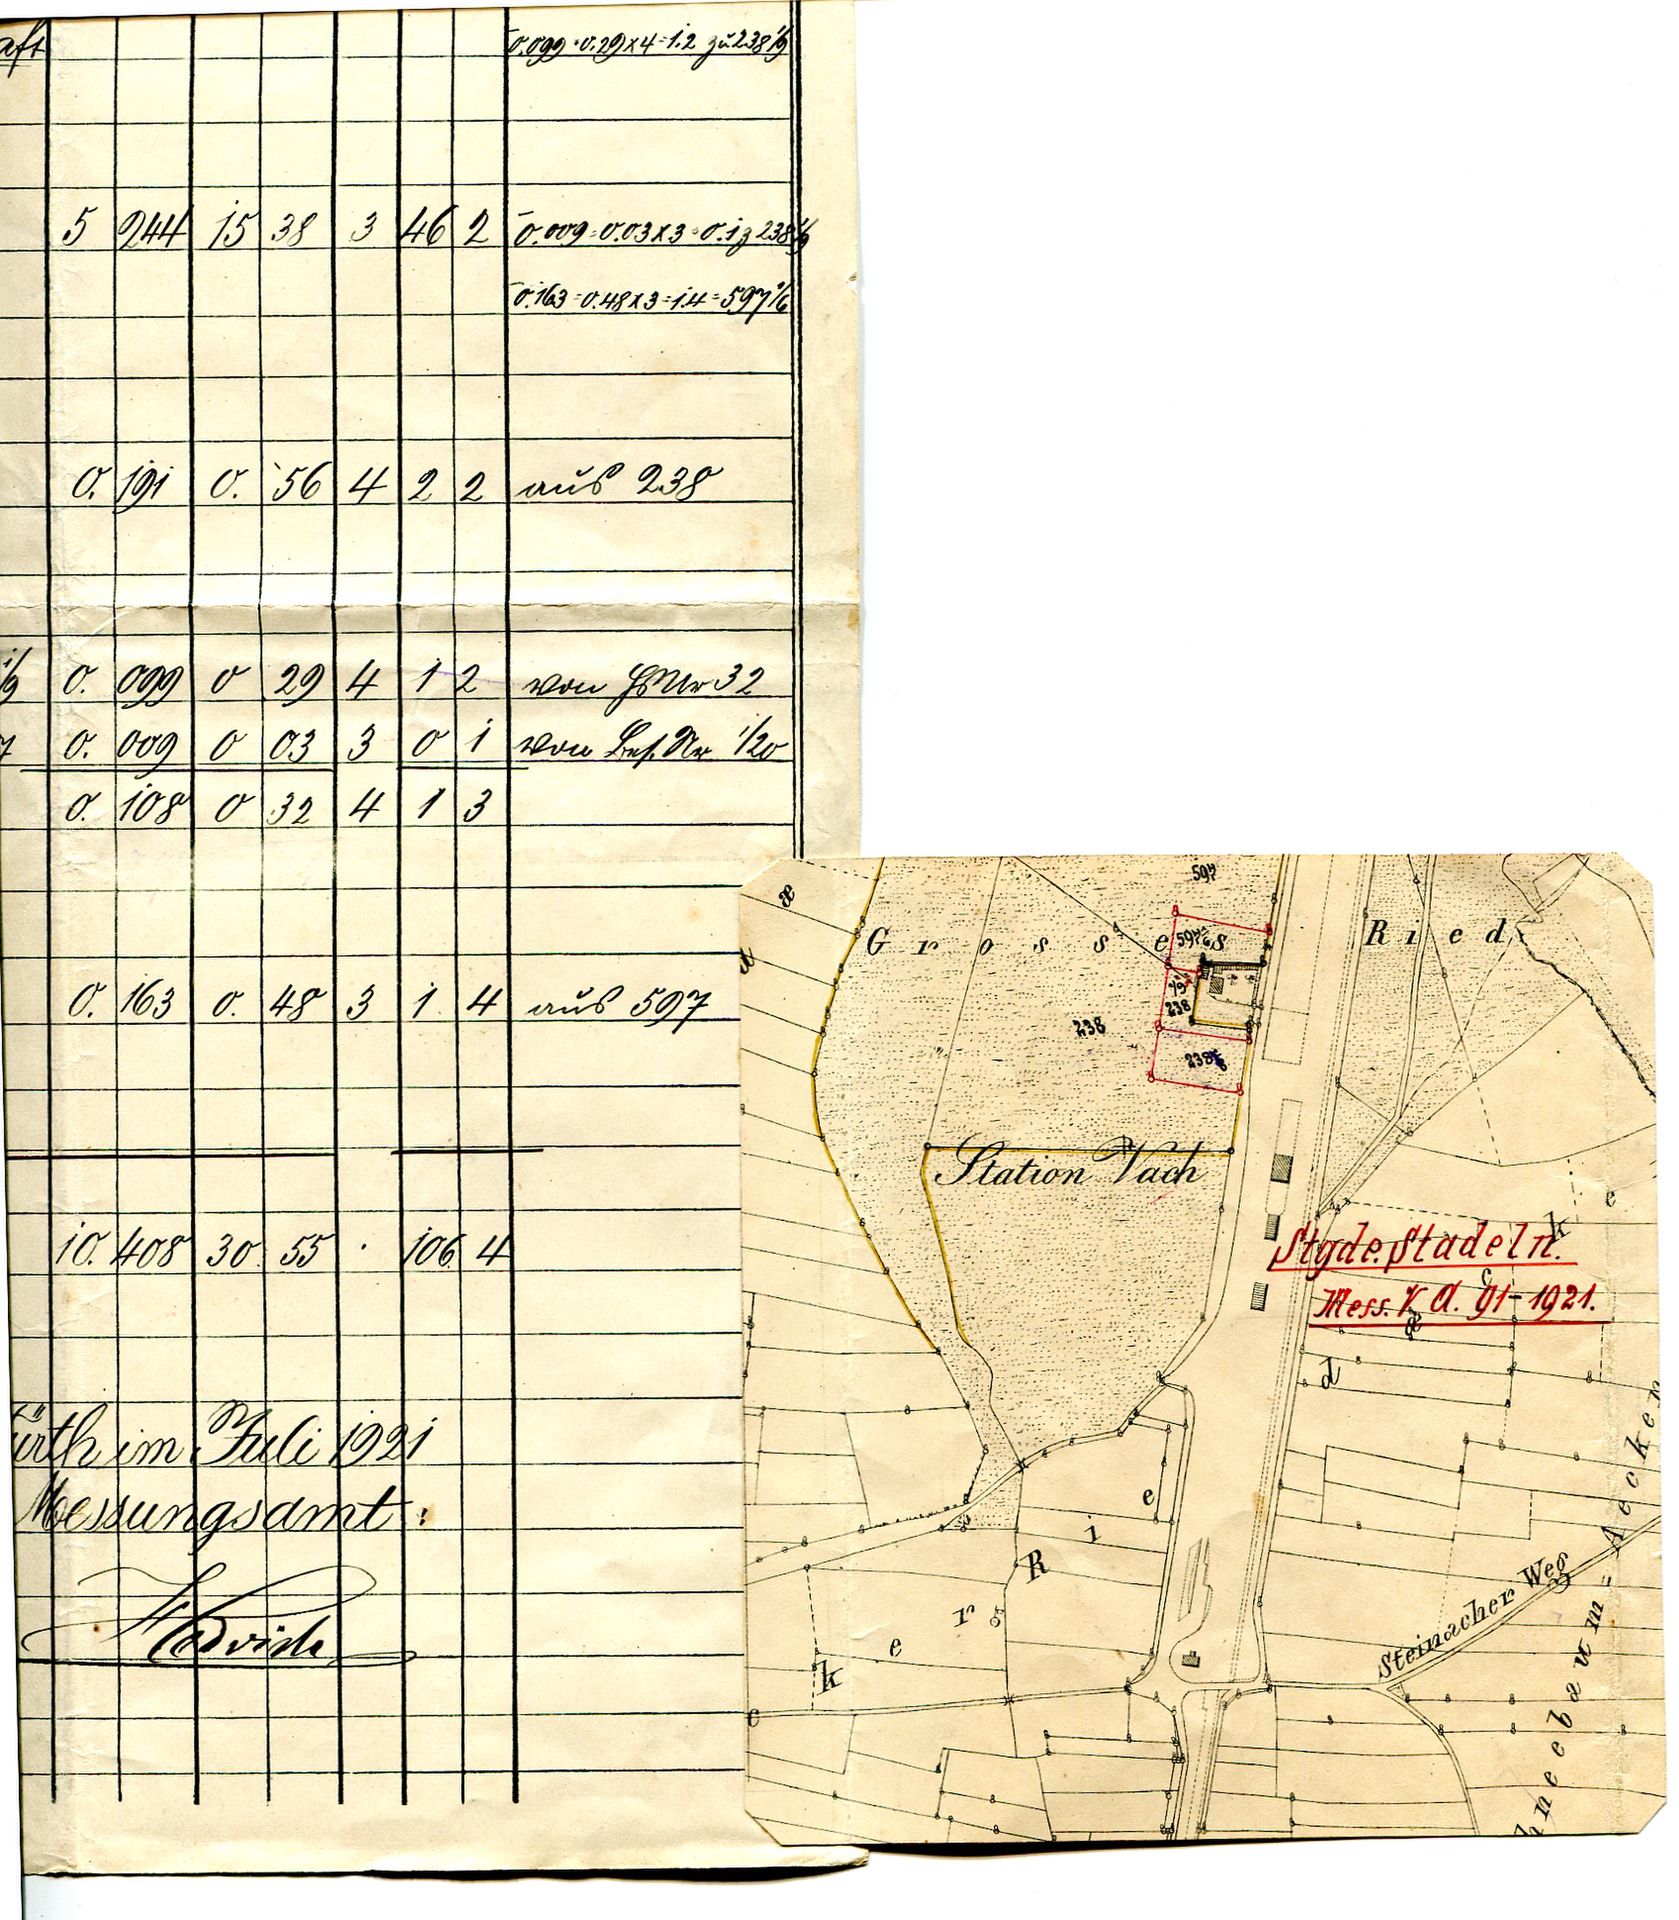 aft 0.099 = 0.29 x 4 = 1.2 zu 238 1/9
5 244 15 38 3 46 2 0.009 = 0.03 x 3 = 0.1 z 238 1/9
0.163 = 0.48 x 3 = 1.4 = 597 1/6
0. 191 0. 56 4 2 2 aus 238
1/9 0. 099 0 29 4 1 2 von HsNr 32
0. 009 0 03 3 0 1 von Bes. Nr 1/20
0. 108 0 32 4 1 3
0. 163 0. 48 3 1 4 aus 597
10. 408 30 55 . 106 4
ürth im Juli 1921
Messungsamt:
597
Grosses Ried
597 1/6
1/9
238
238
238
Station Vach
Stgde. Stadeln.
Mess. V. A. 91-1921.
Steinacher Weg
hneebaum-Aecker